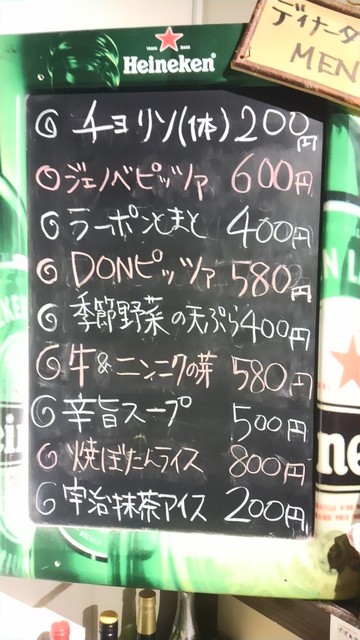 ディナータ
MEN
Heineken
◎チョリソ(1本)200円
◎ジェノベピッツァ 600円
◎ラーポンとまと 400円
◎DONピッツァ 580円
◎季節野菜の天ぷら400円
◎牛&ニンニクの芽 580円
◎辛旨スープ 500円
◎焼ぼたんライス 800円
◎宇治抹茶アイス 200円